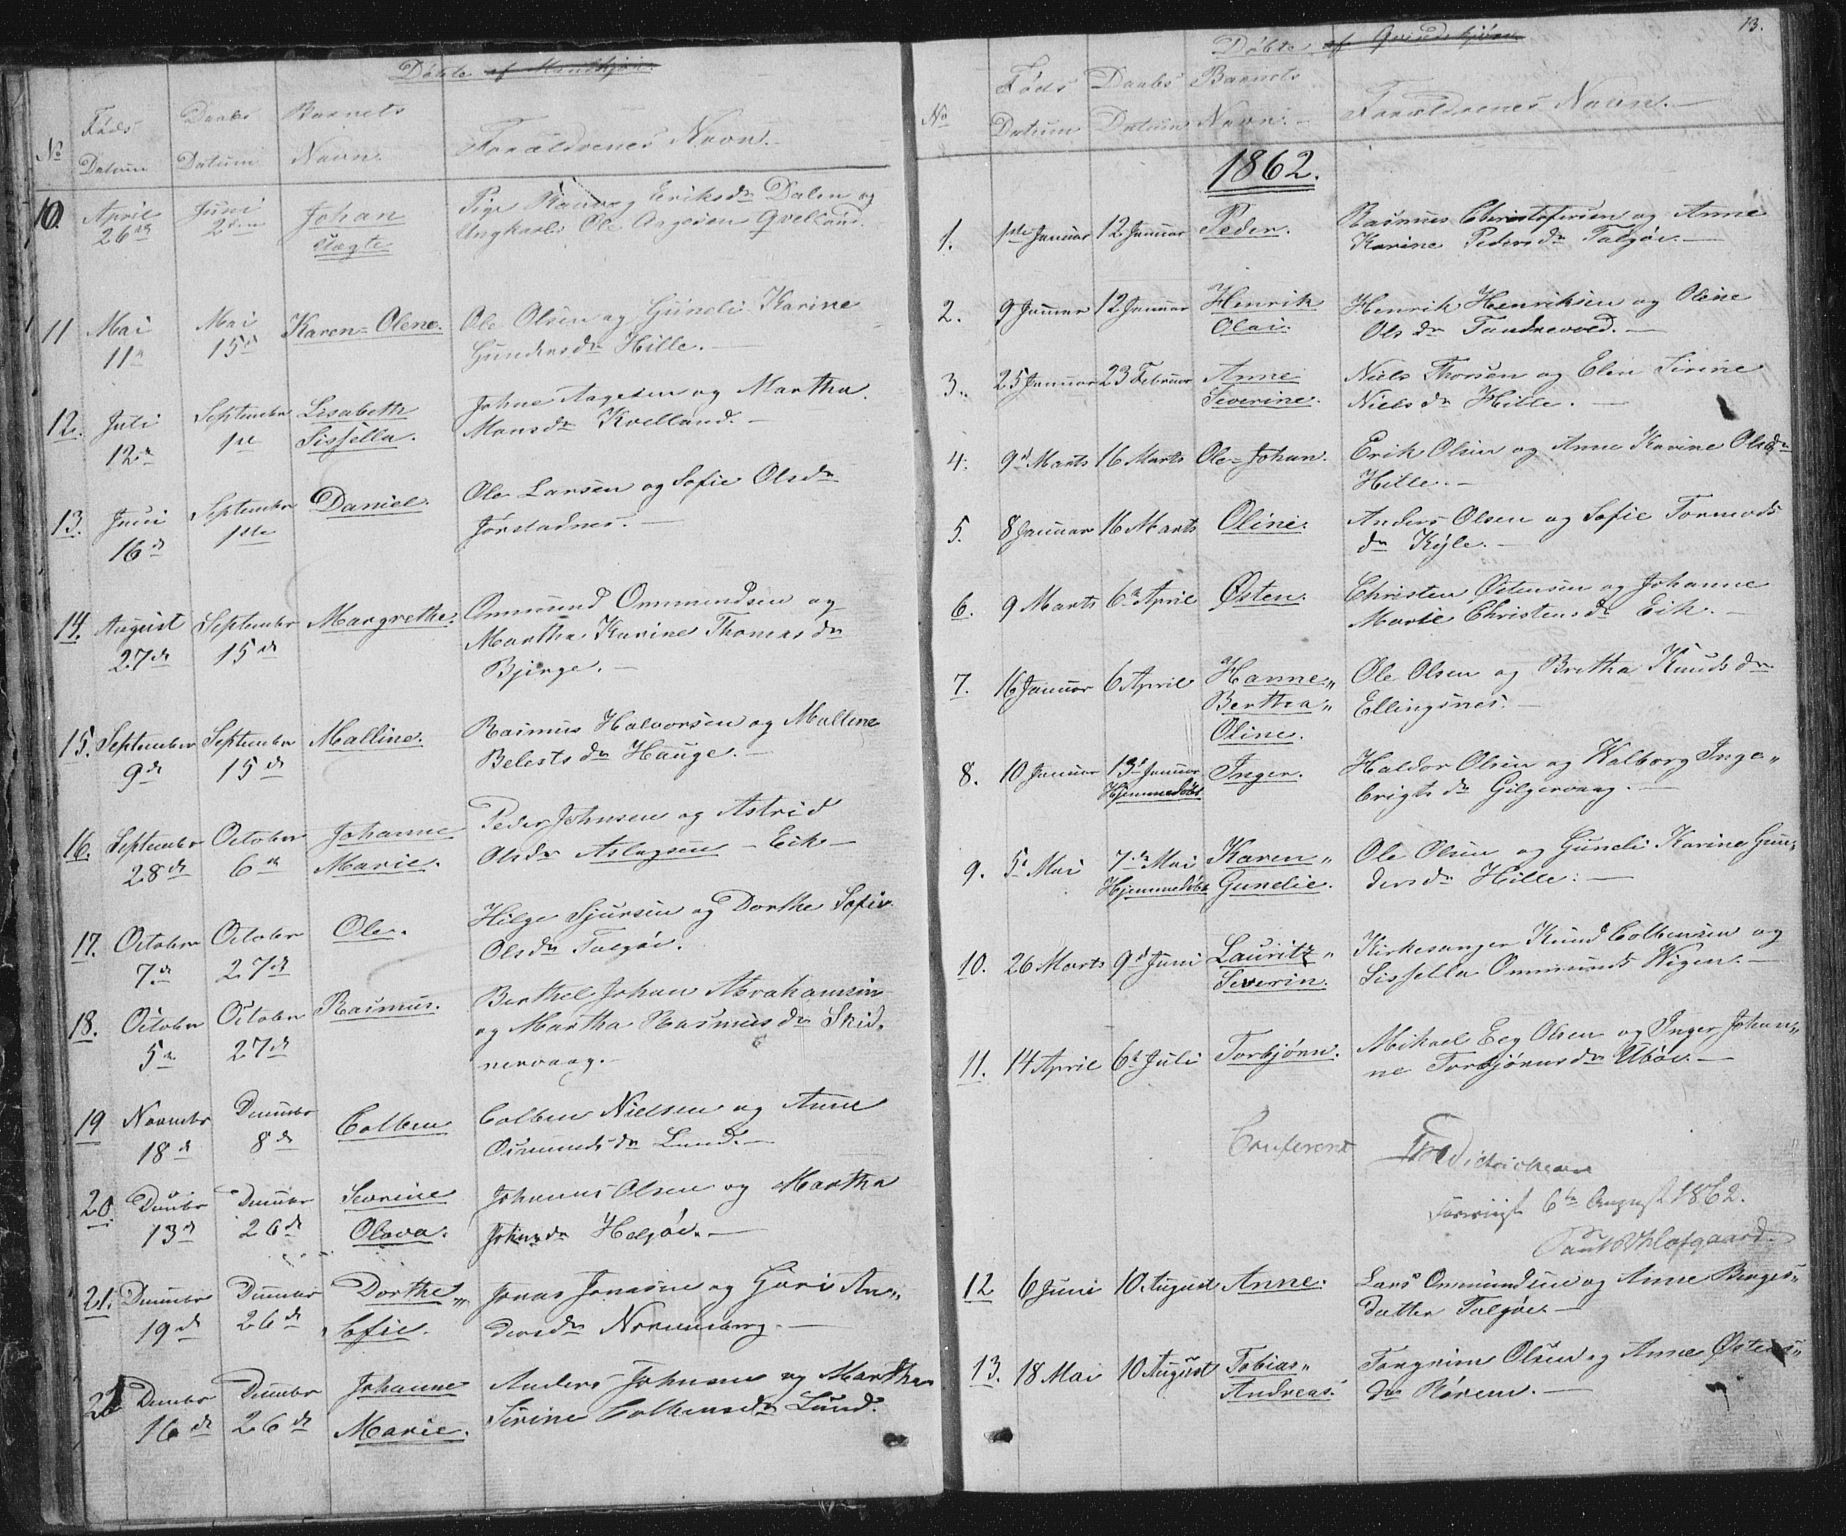 Døbte af Mandkjøn.
No
Føds Datum
Daabs Datum
Barnets Navn.
Forældrenes Navn.
10. April 26de Juni 2den Johan Aagte Pige Eriksdr Dalen og
Ungkarl Ole Aagesen Qvelland.
11 Mai 11te Mai 15de Karen Olene. Ole Olsen og Guneli Karine
Gundersdr Hille.
12. Juli 12te September 1ste Lisabeth Sissella. Johne Aagesen og Martha
Monsdr Kvelland.
13. Juni 16de September 1ste Daniel. Ole Larsen og Sofie Olsdr
Jørstadnes.
14. August 27de September 15de Margrethe. Ommund Ommundsen og
Martha Karine Thomasdr
Bjerge.
15. September 9de September 15de Malline. Rasmus Halvorsen og Malline
Belestsdr Hauge.
16. September 28de October 6te Johanne Marie. Peder Johnsen og Astrid
Olsdr Aslagsen Eik
17. October 7de October 27de Ole. Hilge Sjursen og Dorthe Sofie
Olsdr Talgøe.
18. October 5te October 27de Rasmus. Berthel Johan Abrahamsen
og Martha Rasmusdr Skid-
nervaag.
19 Novembr 18de Decembr 8de Colben Colben Nielsen og Anne
Osmundsdr Lund.
20. Decbr 13de Decembr 26de Severine Olava. Johannes Olsen og Martha
Johnsdr Helgøe.
21. Decembr 19de Decembr 26de Dorthe Sofie. Jonas Jonasen og Guri An-
dersdr Norumberg.
22 Decembr 16de Decembr 26de Johanne Marie. Anders Johnsen og Martha
Sirine Colbensdr Lund.
13.
Døbte af Qvindekjøn
No
Føds Datum
Daabs Datum
Barnets Navn.
Forældrenes Navn.
1862.
1. 1ste Januar 12 Januar Peder. Rasmus Christofersen og Anne
Karine Pedersdr Talgøe.
2. 9 Januar 12 Januar Henrik Olai. Henrik Henriksen og Oline
Olsdr Tandrevold.
3. 25 Januar 23 Februar Anne Severine. Niels Thorsen og Elen Sirine
Nielsdr Hille.
4. 9de Marts 16 Marts Ole Johan. Erik Olsen og Anne Karine Olsdr
Hille.
5. 8 Januar 16 Marts Oline. Anders Olsen og Sofie Tormods
dr Kyle.
6. 9 Marts 6te April Østen. Christen Østensen og Johanne
Marie Christensdr Eik.
7. 16 Januar 6 April Hanne Bertha Oline. Ole Olsen og Bretha Knudsdr
Ellingsnes.
8. 10 Januar 13de Januar Hjemmedøbt Inger. Haldor Olsen og Walborg Inge-
brigtsdr Gilgervaag.
9. 5te Mai 7de Mai Hjemmedøbt Karen Gunelie. Ole Olsen og Guneli Karine Gun-
dersdr Hille.
10. 26 Marts 9de Juni Lauritz Severin. Kirkesanger Knud Colbensen og
Sissella Ommunds Wigen.
11. 14 April 6te Juli Torbjørn. Mikael Eeg Olsen og Inger Johan-
ne Torbjørnsdr Ubøe.
Confereret
6te August 1862.
12 6 Juni 10 August Anne. Lars Ommundsen og Anne Birges-
datter Talgøe.
13. 18 Mai 10 August Tobias Andreas. Torgrim Olsen og Anne Østens-
dr Rørem.